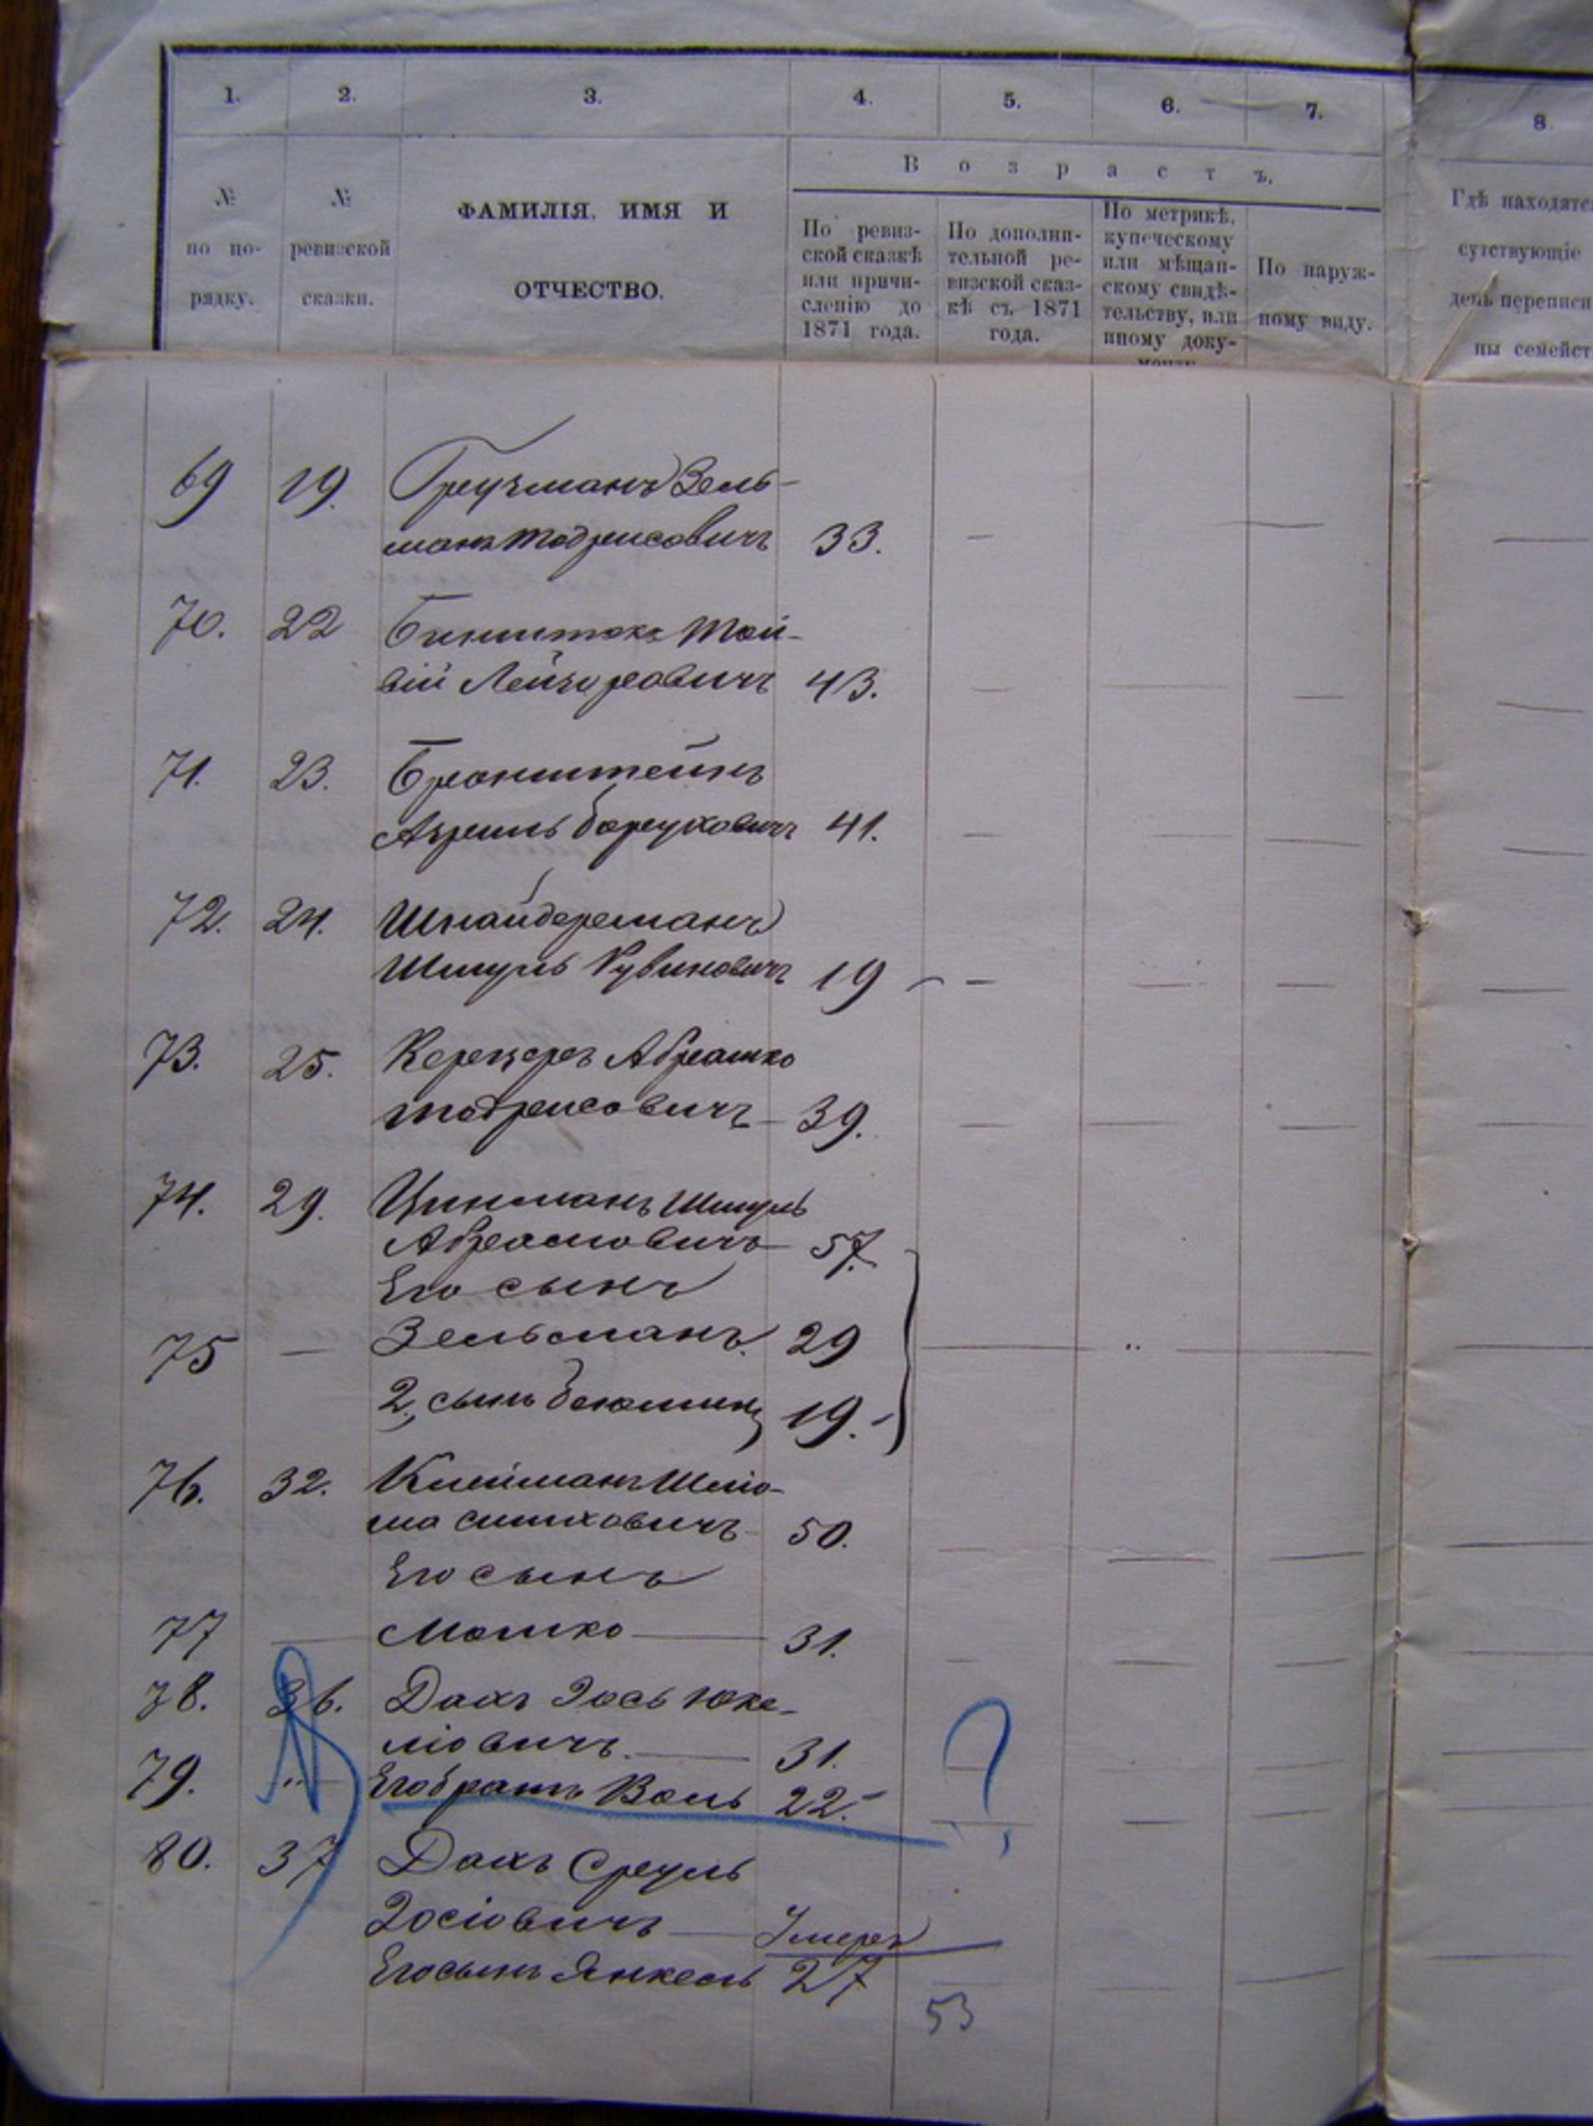 1. 2. 3. 4. 5. 6. 7. 8
№ по по- рядку.
№ ревизской сказки.
ФАМИЛІЯ, ИМЯ И
ОТЧЕСТВО.
Возрастъ.
По ревиз-
ской сказкѣ
или причи-
сленію до
1871 года.
По дополни-
тельной ре-
визской сказ-
кѣ съ 1871
года.
По метрикѣ,
купеческому
или мѣщан-
скому свидѣ-
тельству, или
иному доку-
По наруж-
ному виду.
Гдѣ находятс
сутствующіе
день переписи
ны семейст
69 19. Зель-
манъ Тодресовичъ 33.
70. 22 Той-
вій Лейзоровичъ 43.
71. 23. Бронштейнъ
Азріилъ Боруховичъ 41.
72. 24. Шнайдерманъ
Шмуль Рувиновичъ 19
73. 25. Керцеръ Абрашко
Тодресовичъ 39.
74. 29. Цинманъ Шмуль
Абрамовичъ 57.
Его сынъ
75 — Зельманъ 29
2, сынъ Беюминъ 19.
76. 32. Клейманъ Шлио-
ма Симховичъ 50.
Его сынъ
77 — Мошко — 31.
78. 36. Дахъ Іось Юке-
ліовичъ — 31.
79. „ Его братъ Воль 22. ?
80. 37 Дахъ Сруль
Іосіовичъ — Умеръ
Его сынъ Янкель 27
53